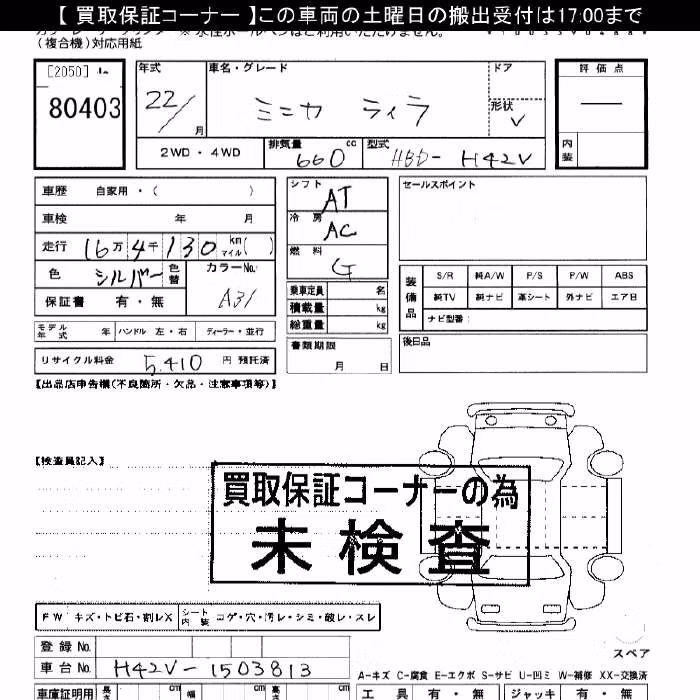 【 買取保証コーナー 】この車両の土曜日の搬出受付は17:00まで
(複合機)対応用紙
[2050]
80403
年式 車名・グレード ドア 評価点
22/ 月 ミニカ ライラ 形状 V
2WD・4WD 排気量 660 cc 型式 HBD-H42V 内装
車歴 自家用・( )
車検 年 月
走行 16万4千130 km マイル( )
色 シルバー 色替 カラーNo. A31
保証書 有・無
シフト AT
冷房 AC
燃料 G
乗車定員 名
積載量 kg
総重量 kg
セールスポイント
装備品 S/R 純A/W P/S P/W ABS
純TV 純ナビ 革シート 外ナビ エア日
ナビ型番:
モデル年式 年 ハンドル 左・右 ディーラー・並行
リサイクル料金 5,410 円 預託済
書類期限 月 日
後日品
【出品店申告欄(不良箇所・欠品・注意事項等)】
【検査員記入】
買取保証コーナーの為
未検査
FW キズ・トビ石・割レX シート内装 コゲ・穴・汚レ・シミ・敵レ・スレ
登録 No.
車台 No. H42V-1503813
スペア
A-キズ C-腐食 E-エクボ S-サビ U-凹ミ W-補修 XX-交換済
車庫証明用 長さ cm 幅 cm 高さ cm
工具 有・無 ジャッキ 有・無